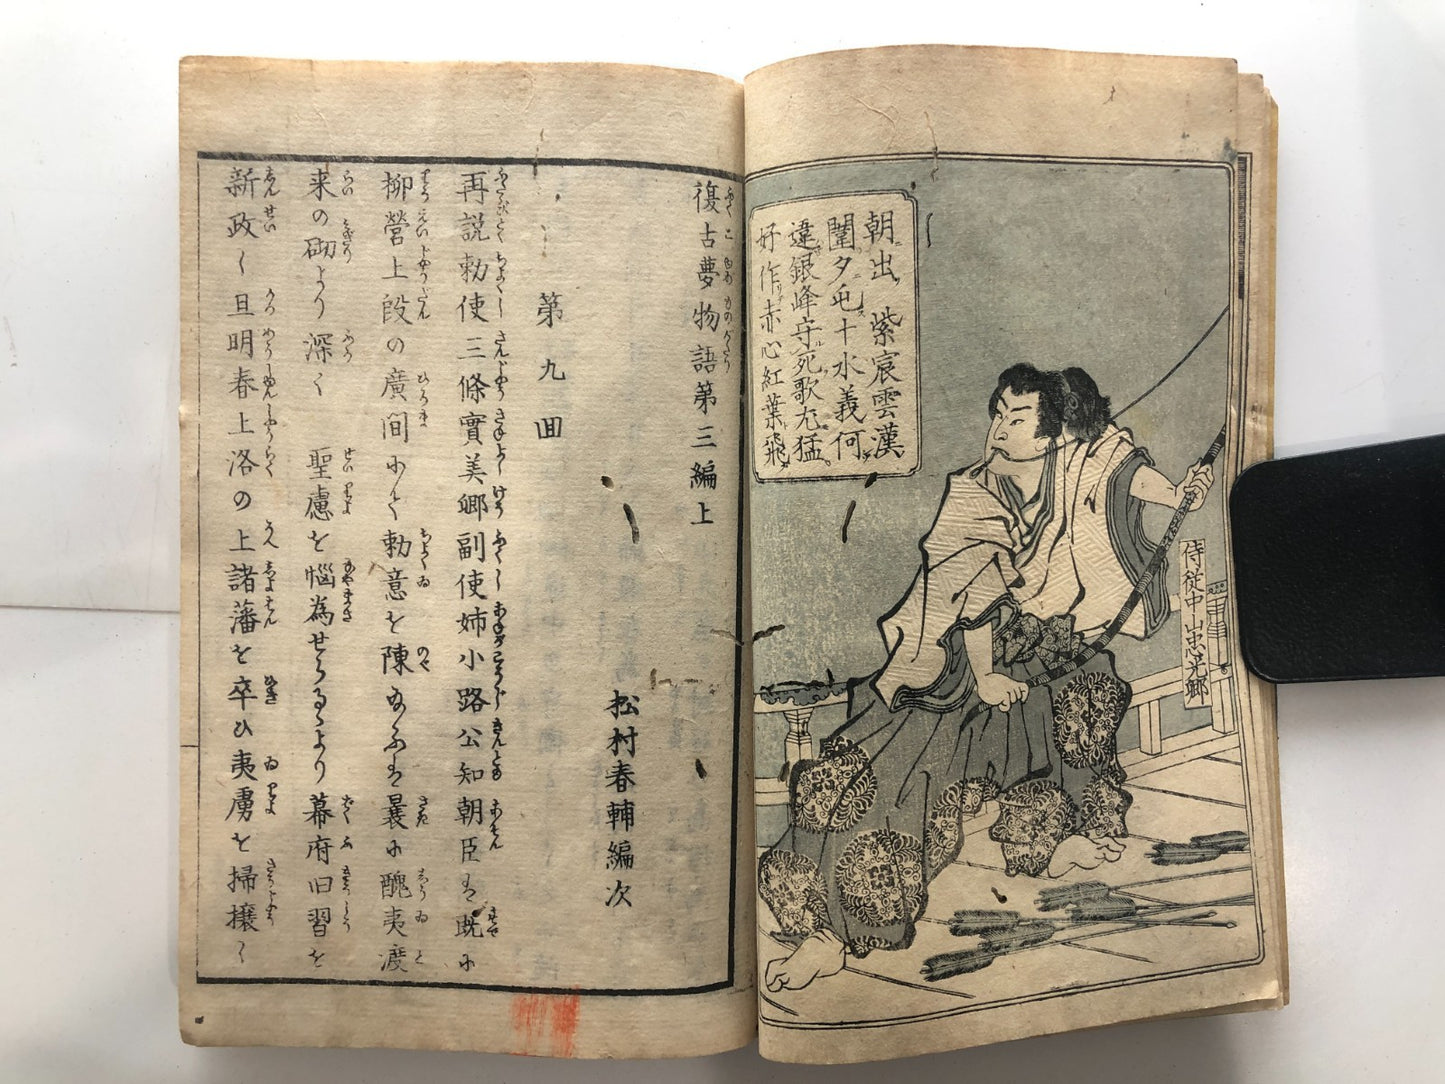 朝出紫宸雲漢
闈夕屯十水義何
違銀峰守死歌尤猛
好作赤心紅葉飛
侍従中山忠光郷
復古夢物語第三編上
松村春輔編次
第九回
再説勅使三條實美郷副使姉小路公知朝臣ハ既に
柳營上段の廣间に於て勅意を陳
曩に醜夷渡
来の砌より深く聖慮を悩為せらるゝより幕府旧習を
新政し且明春上洛の上諸藩を卒ひ夷虜を掃攘し